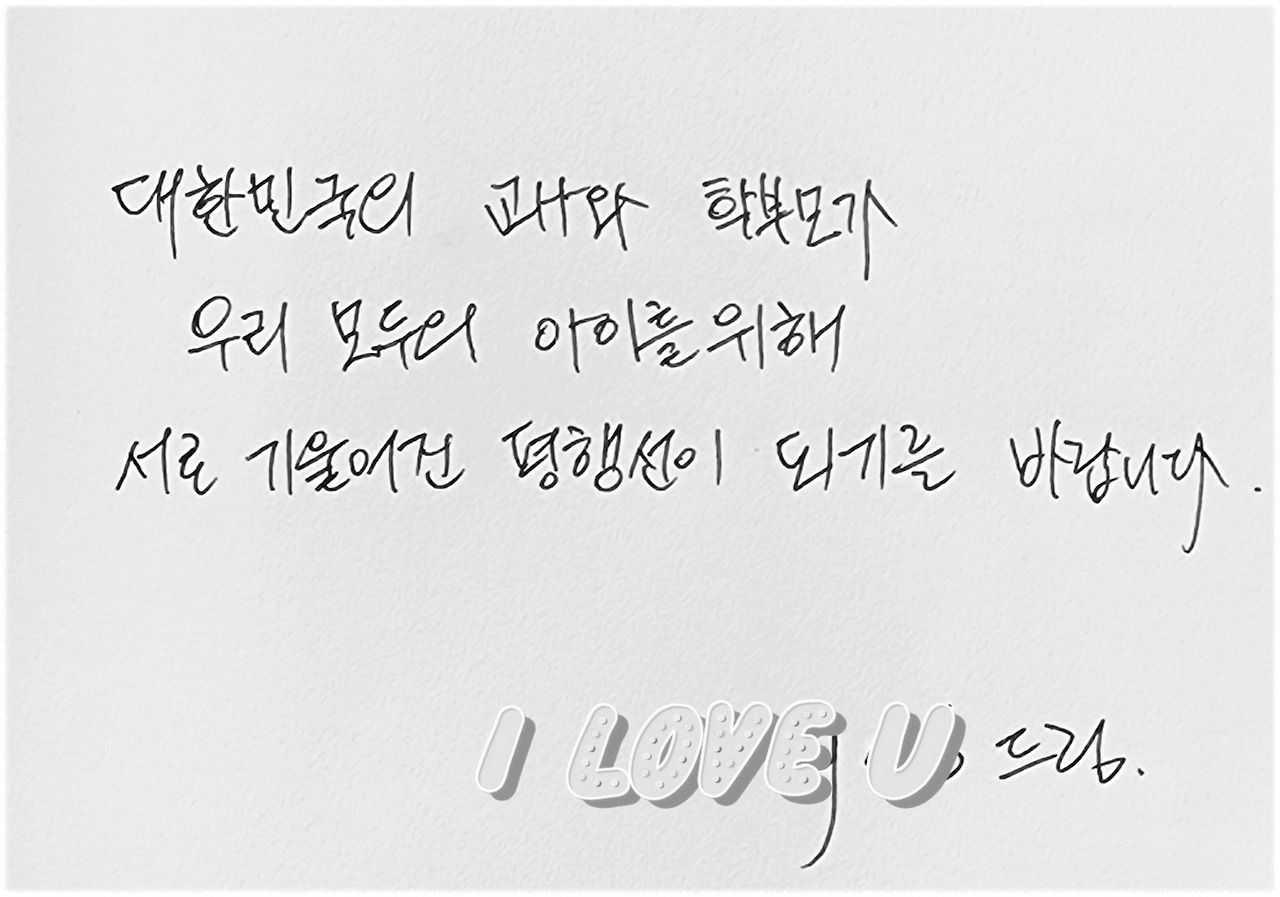 대한민국의 교사와 학부모가
우리 모두의 아이를위해
서로 기울어진 평행선이 되기를 바랍니다.
I LOVE U 드림.